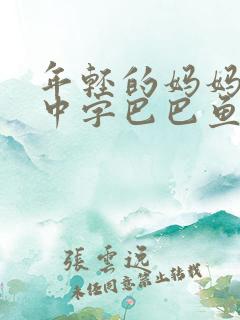 年轻的妈妈
中字巴巴鱼
張雲远
未经同意禁止转载